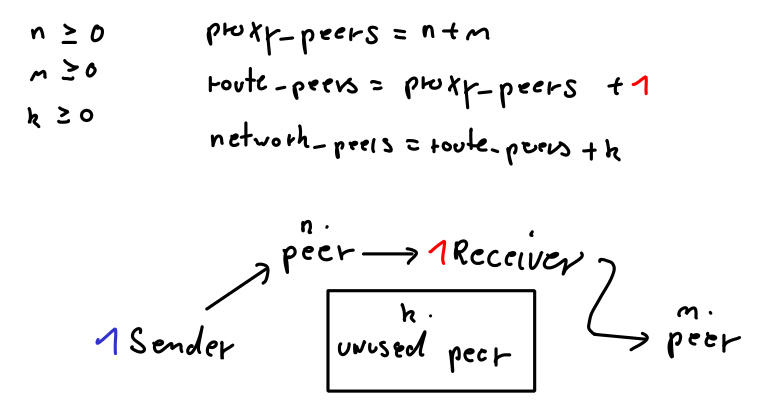 n ≥ 0
m ≥ 0
k ≥ 0
proxy-peers = n + m
route-peers = proxy-peers + 1
network-peers = route-peers + k
n.
peer → 1 Receiver
1 Sender
k.
unused peer
m.
peer